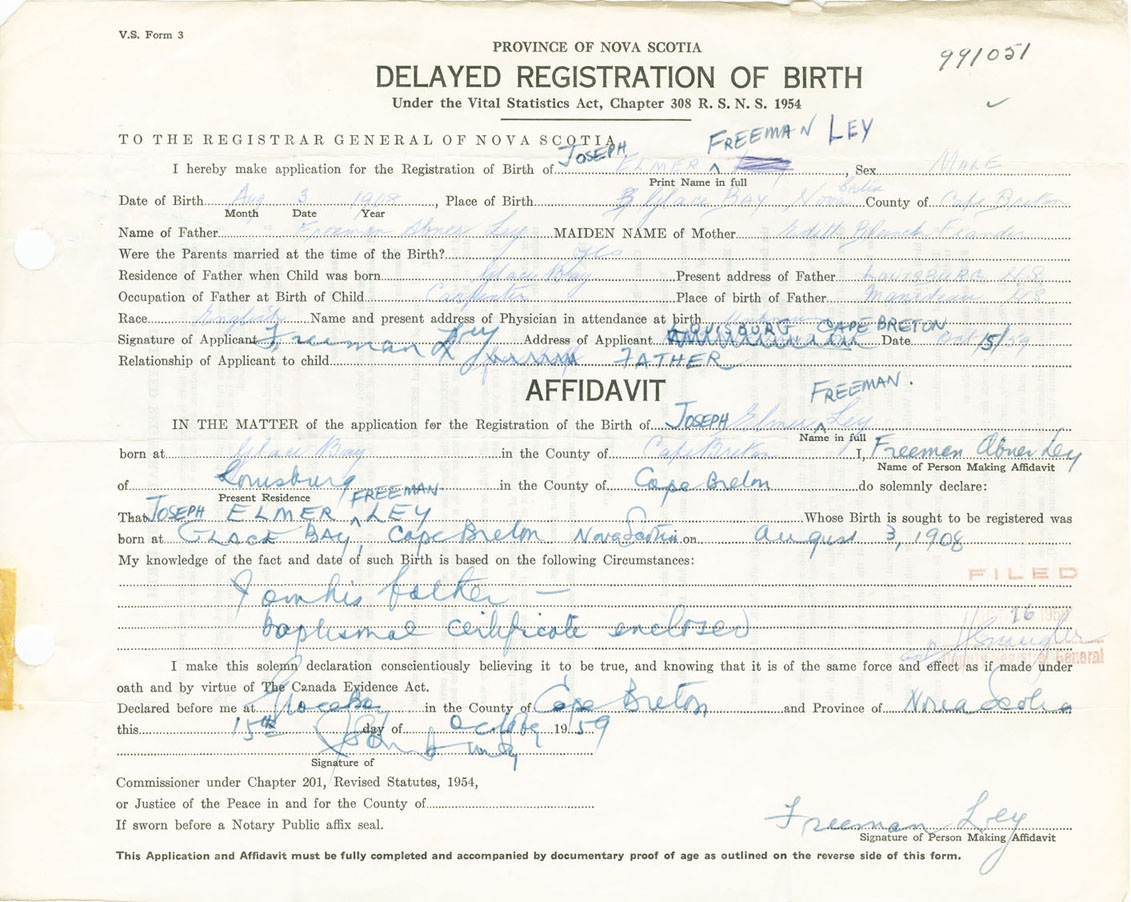 V.S. Form 3
PROVINCE OF NOVA SCOTIA
991051
DELAYED REGISTRATION OF BIRTH
Under the Vital Statistics Act, Chapter 308 R. S. N. S. 1954
TO THE REGISTRAR GENERAL OF NOVA SCOTIA
FREEMAN LEY
I hereby make application for the Registration of Birth of JOSEPH ELMER ^ , Sex MALE
Print Name in full
Date of Birth Aug 3 1908, Place of Birth Glace BAY, Nova Scotia County of Cape Breton
Month Date Year
Name of Father Freeman Abner Ley MAIDEN NAME of Mother Edith Blanch
Were the Parents married at the time of the Birth? Yes
Residence of Father when Child was born Glace Bay Present address of Father LOUISBURG N.S
Occupation of Father at Birth of Child Carpenter Place of birth of Father NS
Race English Name and present address of Physician in attendance at birth Unknown
Signature of Applicant Freeman Ley Address of Applicant LOUISBURG CAPE BRETON Date Oct 15/59
Relationship of Applicant to child FATHER
AFFIDAVIT
FREEMAN.
IN THE MATTER of the application for the Registration of the Birth of JOSEPH Elmer ^ Ley
Name in full
born at Glace Bay in the County of Cape Breton I, Freeman Abner Ley
Name of Person Making Affidavit
of Louisburg in the County of Cape Breton do solemnly declare:
Present Residence
FREEMAN
That JOSEPH ELMER ^ LEY Whose Birth is sought to be registered was
born at GLACE BAY, Cape Breton Nova Scotia on August 3, 1908
My knowledge of the fact and date of such Birth is based on the following Circumstances:
FILED
I am his father –
16
baptismal certificate enclosed
General
I make this solemn declaration conscientiously believing it to be true, and knowing that it is of the same force and effect as if made under
oath and by virtue of The Canada Evidence Act.
Declared before me at in the County of Cape Breton and Province of Nova Scotia
this 15th day of October 1959
Signature of
Commissioner under Chapter 201, Revised Statutes, 1954,
or Justice of the Peace in and for the County of
If sworn before a Notary Public affix seal.
Freeman Ley
Signature of Person Making Affidavit
This Application and Affidavit must be fully completed and accompanied by documentary proof of age as outlined on the reverse side of this form.